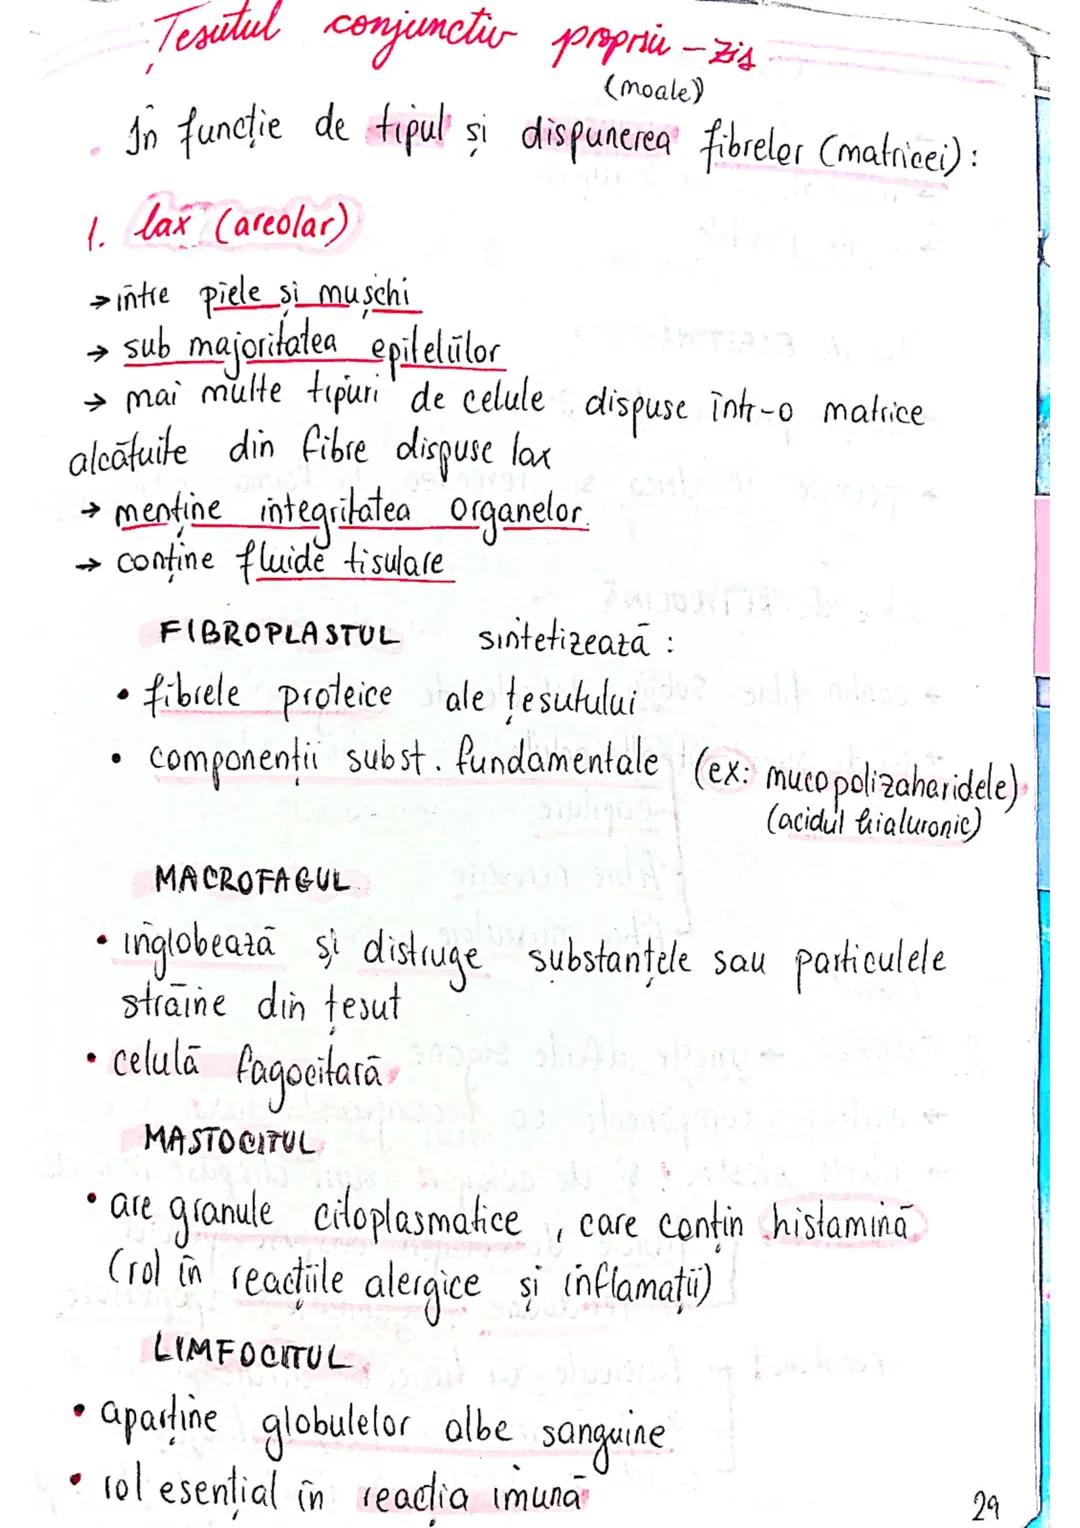 Țesutul conjunctiv propriu-zis
(moale)
În funcție de tipul și dispunerea fibrelor (matricei):
1. lax (areolar)
→ între piele și mușchi
→ sub majoritatea epiteliilor
→ mai multe tipuri de celule dispuse într-o matrice
alcătuite din fibre dispuse lax
→ menține integritatea organelor.
→ conține fluide tisulare
FIBROPLASTUL sintetizează:
• fibrele proteice ale țesutului
• componenții subst. fundamentale (ex: mucopolizaharidele)
(acidul hialuronic)
MACROFAGUL
• înglobează și distruge substanțele sau particulele
străine din țesut
• celulă fagocitară
MASTOCITUL
• are granule citoplasmatice, care conțin histamină
(rol în reacțiile alergice și inflamații)
LIMFOCITUL
• aparține globulelor albe sanguine
• rol esențial în reacția imună
29